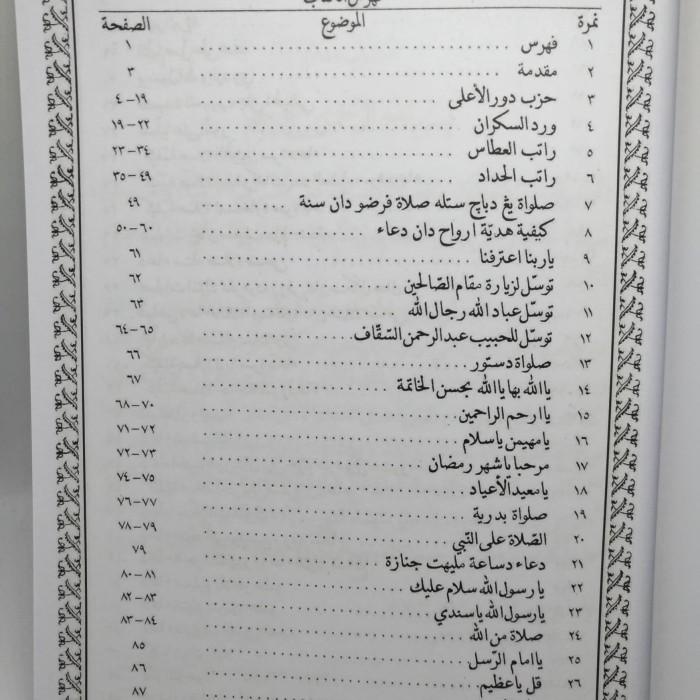 نمرة الموضوع الصفحة
١ فهرس ١
٢ مقدمة ٣
٣ حزب دور الأعلى ٤-١٩
٤ ورد السكران ١٩-٢٢
٥ راتب العطاس ٢٣-٣٤
٦ راتب الحداد ٣٥-٤٩
٧ صلواة يڠ دباچ ستله صلاة فرضو دان سنة ٤٩
٨ كيفية هديّة ارواح دان دعاء ٥٠-٦٠
٩ ياربنا اعترفنا ٦١
١٠ توسّل لزيارة مقام الصّالحين ٦٢
١١ توسّل عباد الله رجال الله ٦٣
١٢ توسّل للحبيب عبد الرحمن السّقّاف ٦٤-٦٥
١٣ صلواة دستور ٦٦
١٤ ياالله بها ياالله بحسن الخاتمة ٦٧
١٥ ياارحم الراحمين ٦٨-٧٠
١٦ يامهيمن ياسلام ٧١-٧٢
١٧ مرحبا ياشهر رمضان ٧٢-٧٣
١٨ يامعيد الأعياد ٧٤-٧٥
١٩ صلواة بدرية ٧٦-٧٧
٢٠ الصّلاة على النّبي ٧٨-٧٩
٢١ دعاء دساعة مليهت جنازة ٧٩
٢٢ يارسول الله سلام عليك ٨٠-٨١
٢٣ يارسول الله ياسندي ٨٢-٨٣
٢٤ صلاة من الله ٨٣-٨٤
٢٥ ياامام الرّسل ٨٥
٢٦ قل ياعظيم ٨٦
٨٧